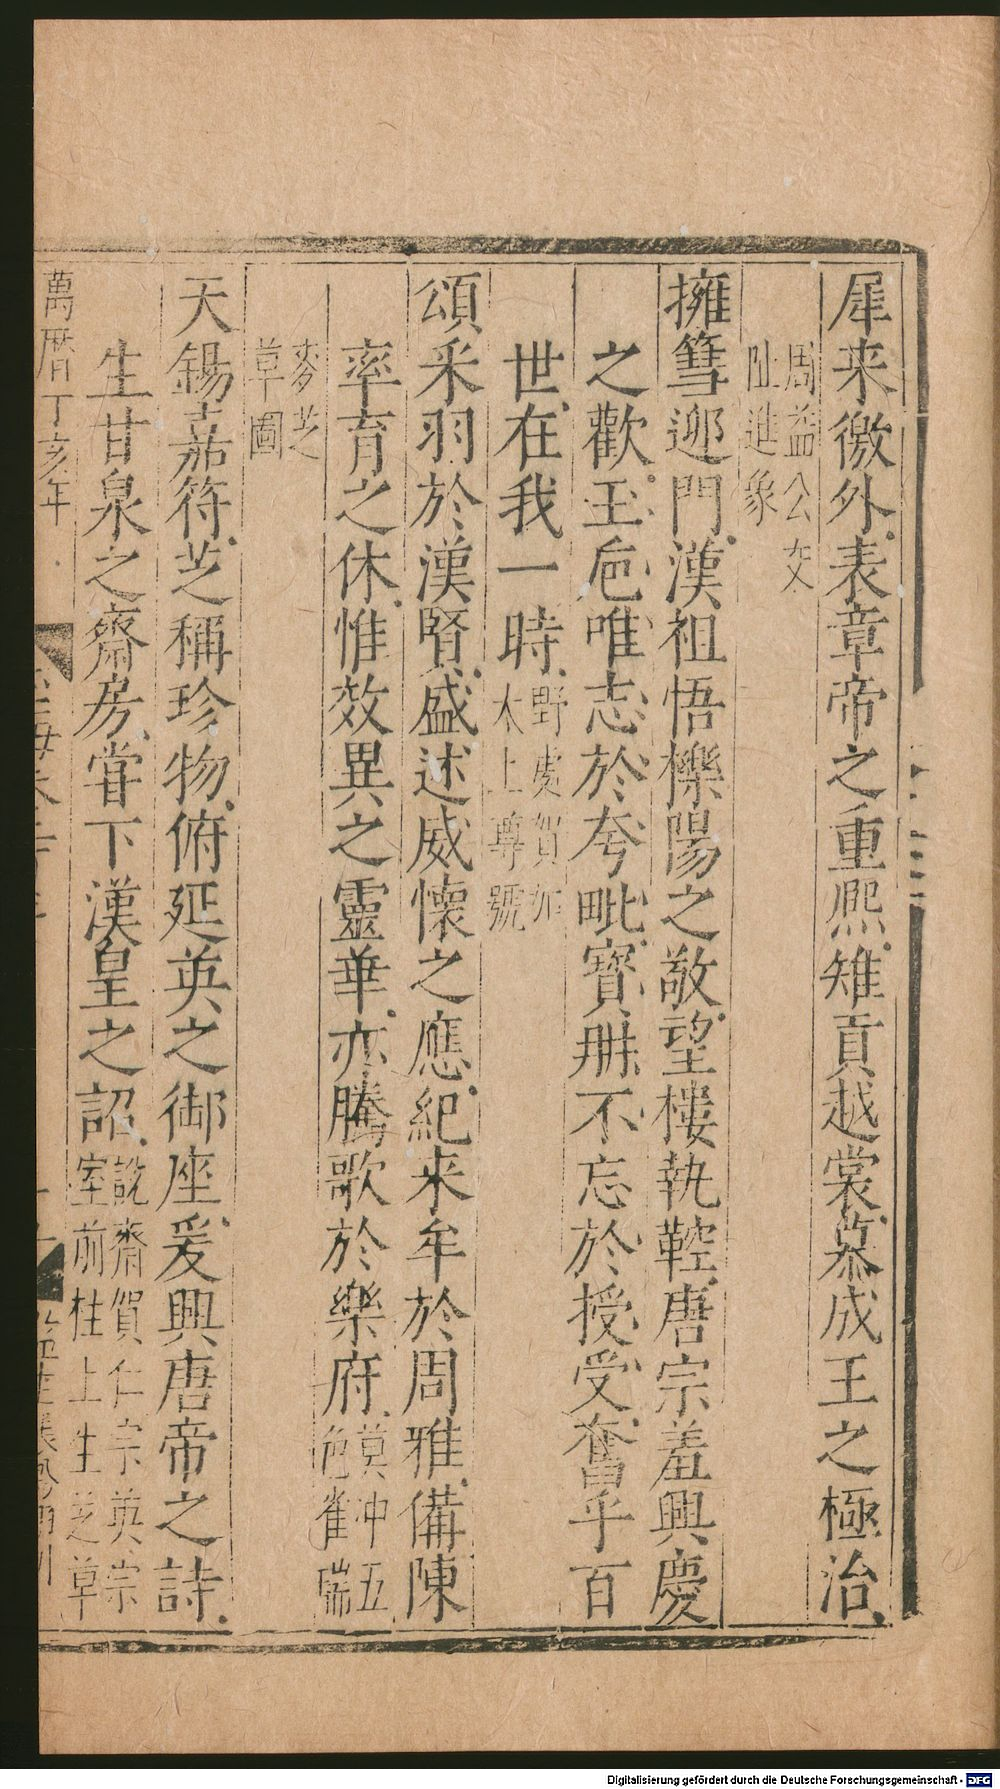 犀来徼外表章帝之重熈雉貢越裳慕成王之極治
周益公交
阯進象
擁篲迎門漢祖悟櫟陽之敬望樓執鞚唐宗羞興慶
之歡玉巵唯志於夸毗寳册不忘於授受奮乎百
世在我一時野處賀加
太上尊號
頌采羽於漢賢盛述威懷之應紀来牟於周雅備陳
率育之休惟效異之靈華亦騰歌於樂府莫冲五
色雀瑞
麥芝
草圖
天錫嘉符芝稱珍物俯延英之御座爰興唐帝之詩
生甘泉之齋房甞下漢皇之詔說齋賀仁宗英宗
室前柱上生芝草
萬曆丁亥年
Digitalisierung gefördert durch die Deutsche Forschungsgemeinschaft - DFG